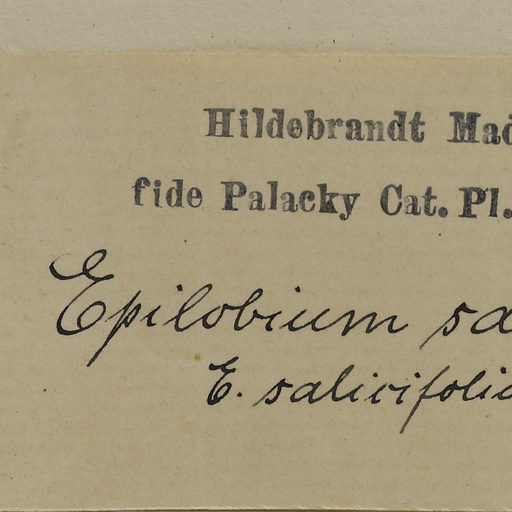 Hildebrandt Mad
fide Palacky Cat. Pl.
Epilobium sa
E. salicifolio